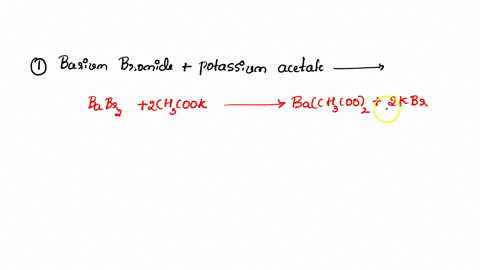 ① Barium Bromide + potassium acetate ⟶
BaBr₂ + 2CH₃COOK ⟶ Ba(CH₃COO)₂ + 2KBr